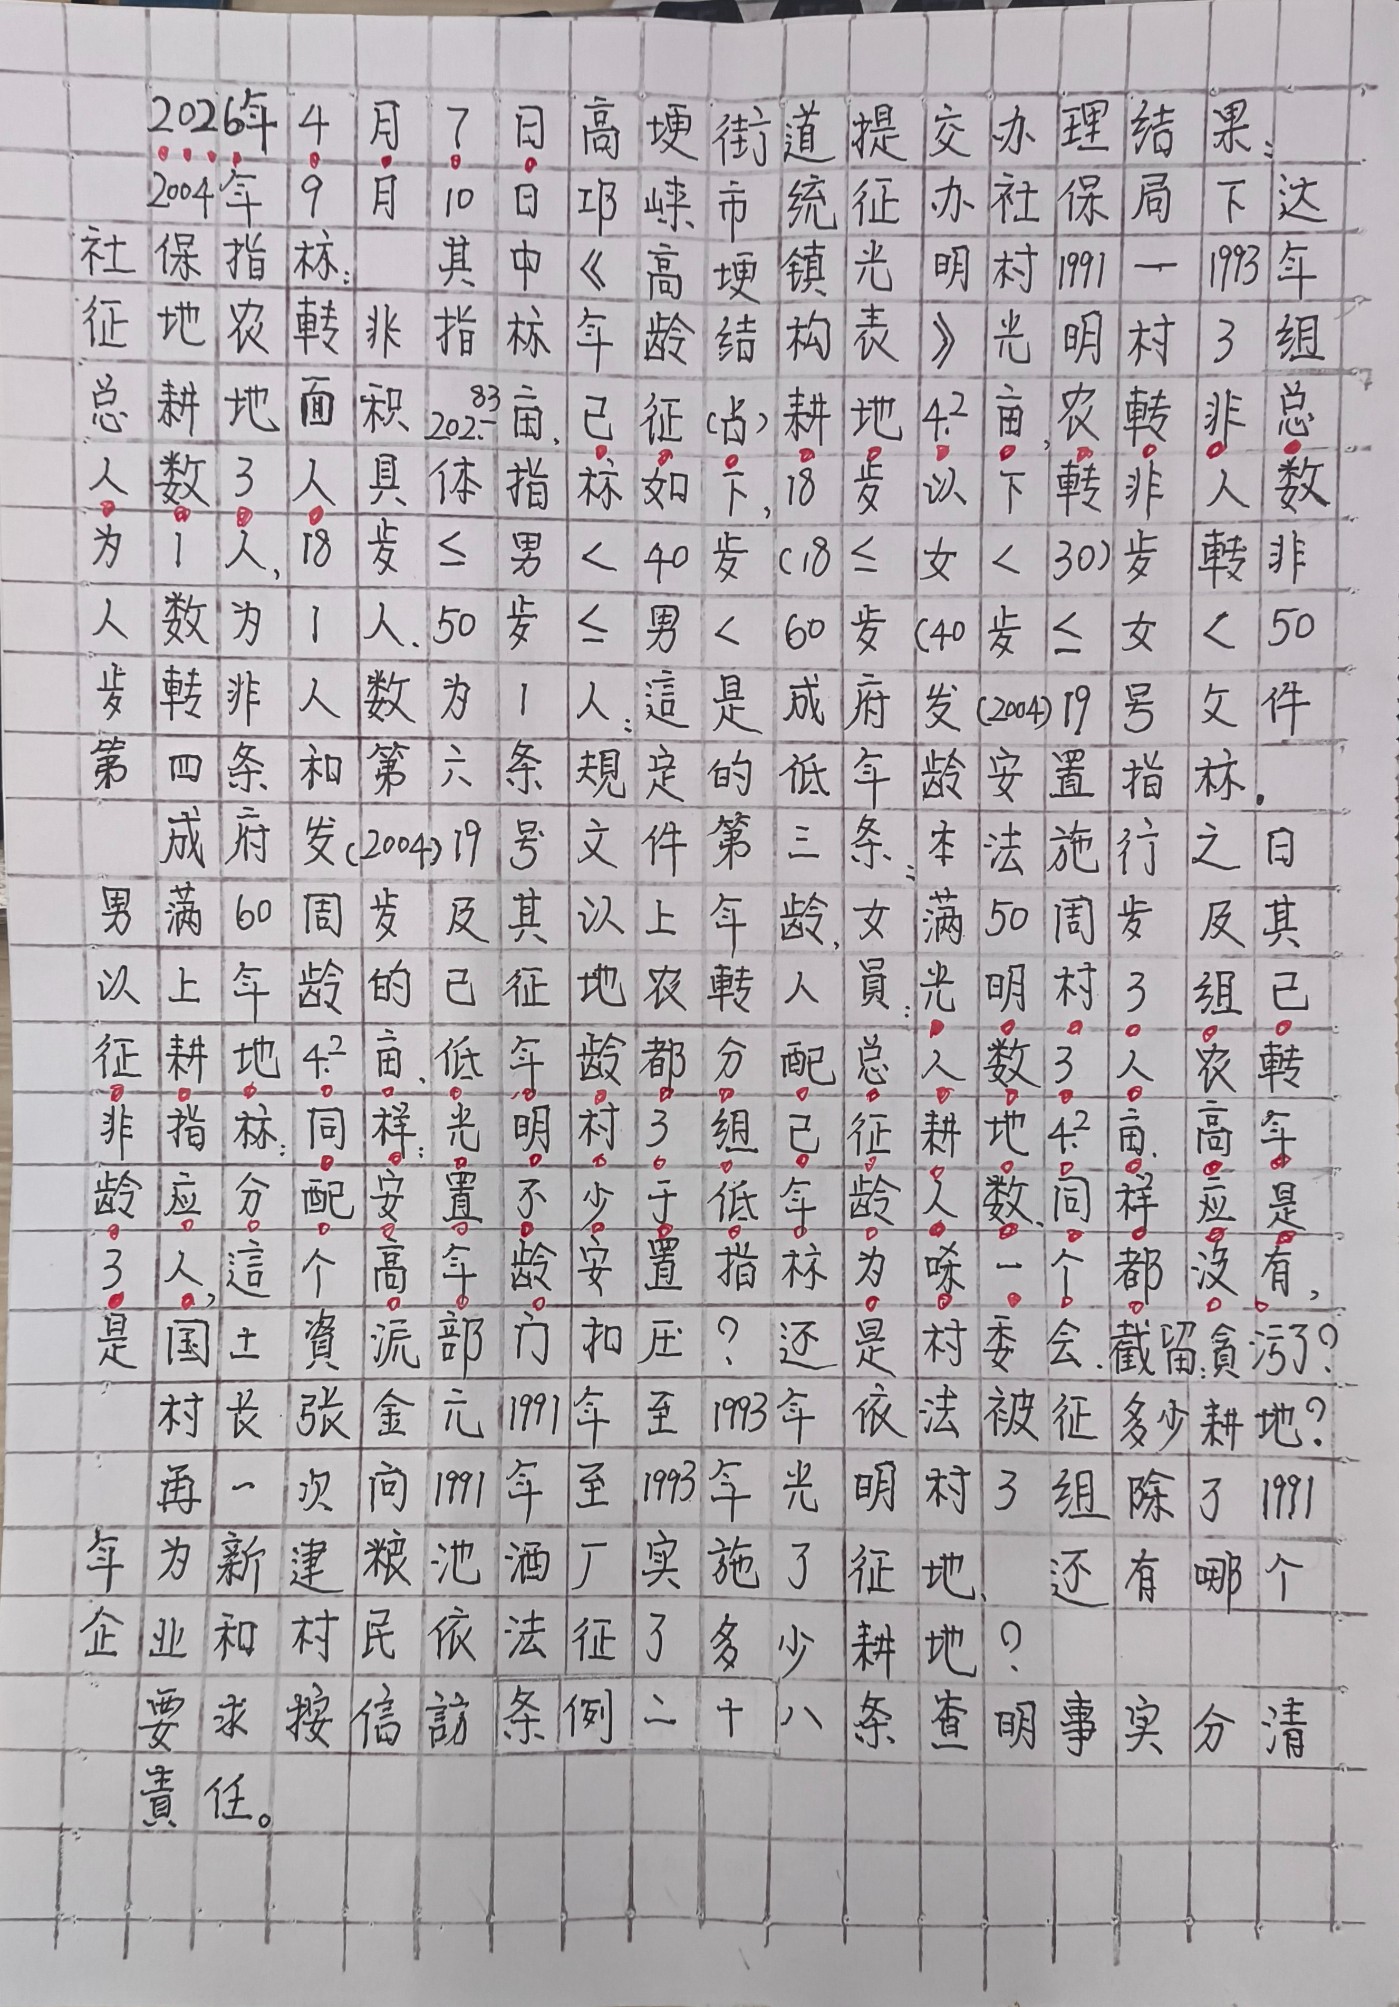 2026年4月7日高埂街道提交办理结果:
2004年9月10日邛崃市统征办社保局下达
社保指标:其中《高埂镇光明村1991一1993年
征地农轉非指标年龄结构表》光明村3组
总耕地面积202.83亩,已征(占)耕地4.2亩,农轉非总
人数3人具体指标如下,18岁以下轉非人数
为1人,18岁≤男<40岁(18≤女<30)岁轉非
人数为1人、50岁≤男<60岁(40岁≤女<50
岁轉非人数为1人:這是成府发(2004)19号文件
第四条和第六条規定的低年龄安置指标.
成府发(2004)19号文件第三条:本法施行之日
男满60周岁及其以上年龄,女满50周岁及其
以上年龄的已征地农轉人員:光明村3组已
征耕地4.2亩、低年龄都分配总人数3人农轉
非指标:同样:光明村3组已征耕地4.2亩、高年
龄应分配安置不少于低年龄人数、同样应是
3人,這个高年龄安置指标为啄一个都沒有,
是国土資源部门扣压?还是村委会、截留、貪污了?
村长張金元1991年至1993年依法被征多少耕地?
再一次问1991年至1993年光明村3组除了1991
年为新建粮池酒厂实施了征地、还有哪个
企业和村民依法征了多少耕地?
要求按信訪条例二十八条查明事实分清
責任。